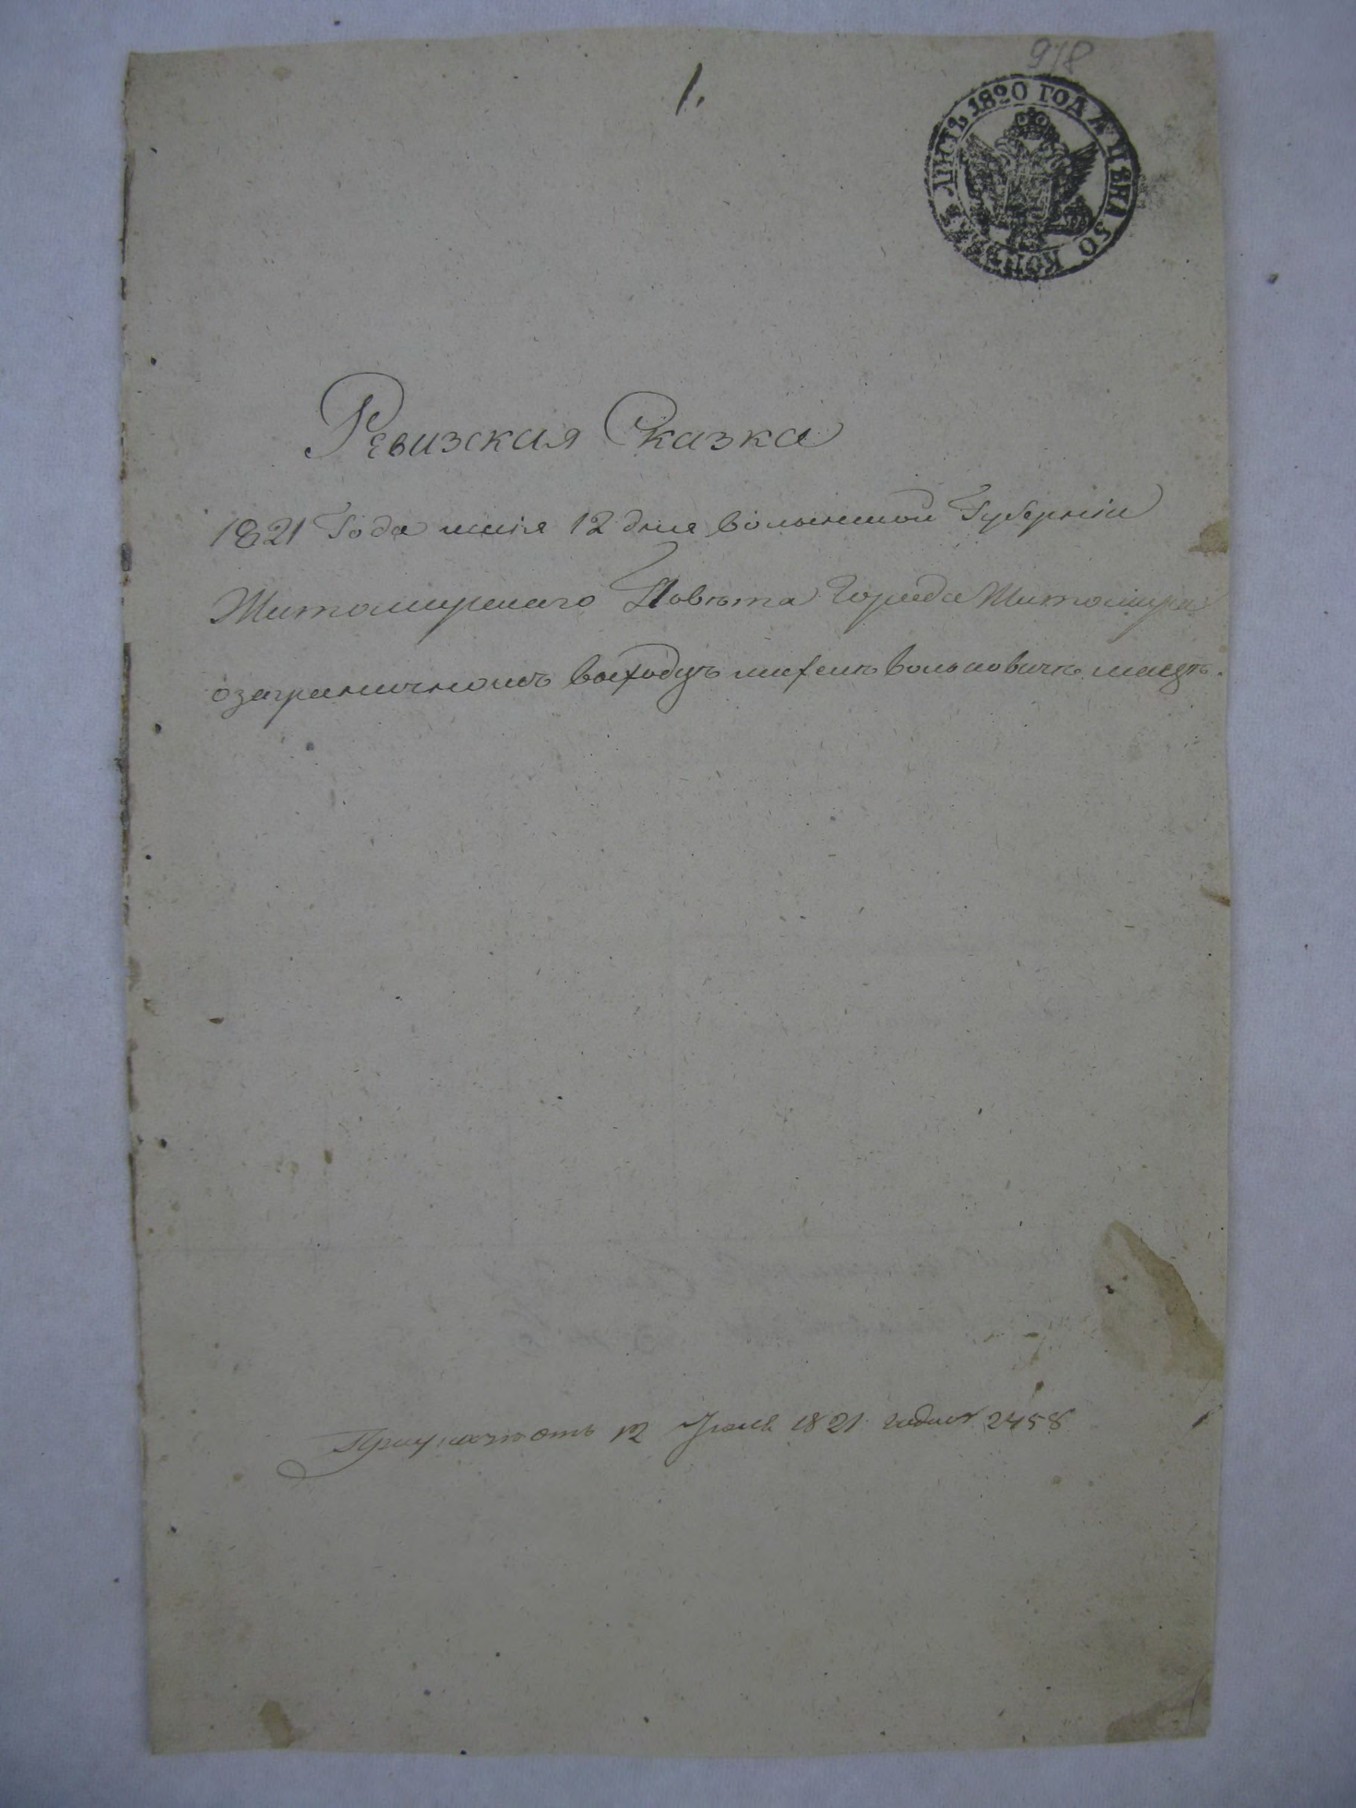 978
1.
1820 ГОДА ЦѢНА 50 КОПѢЕКЪ ЛИСТЪ
Ревизская Сказка
1821 Года июня 12 дня волынской Губерніи
Житомирскаго Повѣта Города Житомира
о заграничномъ выходцѣ михелѣ вольковичѣ
12 Іюня 1821 года 2458